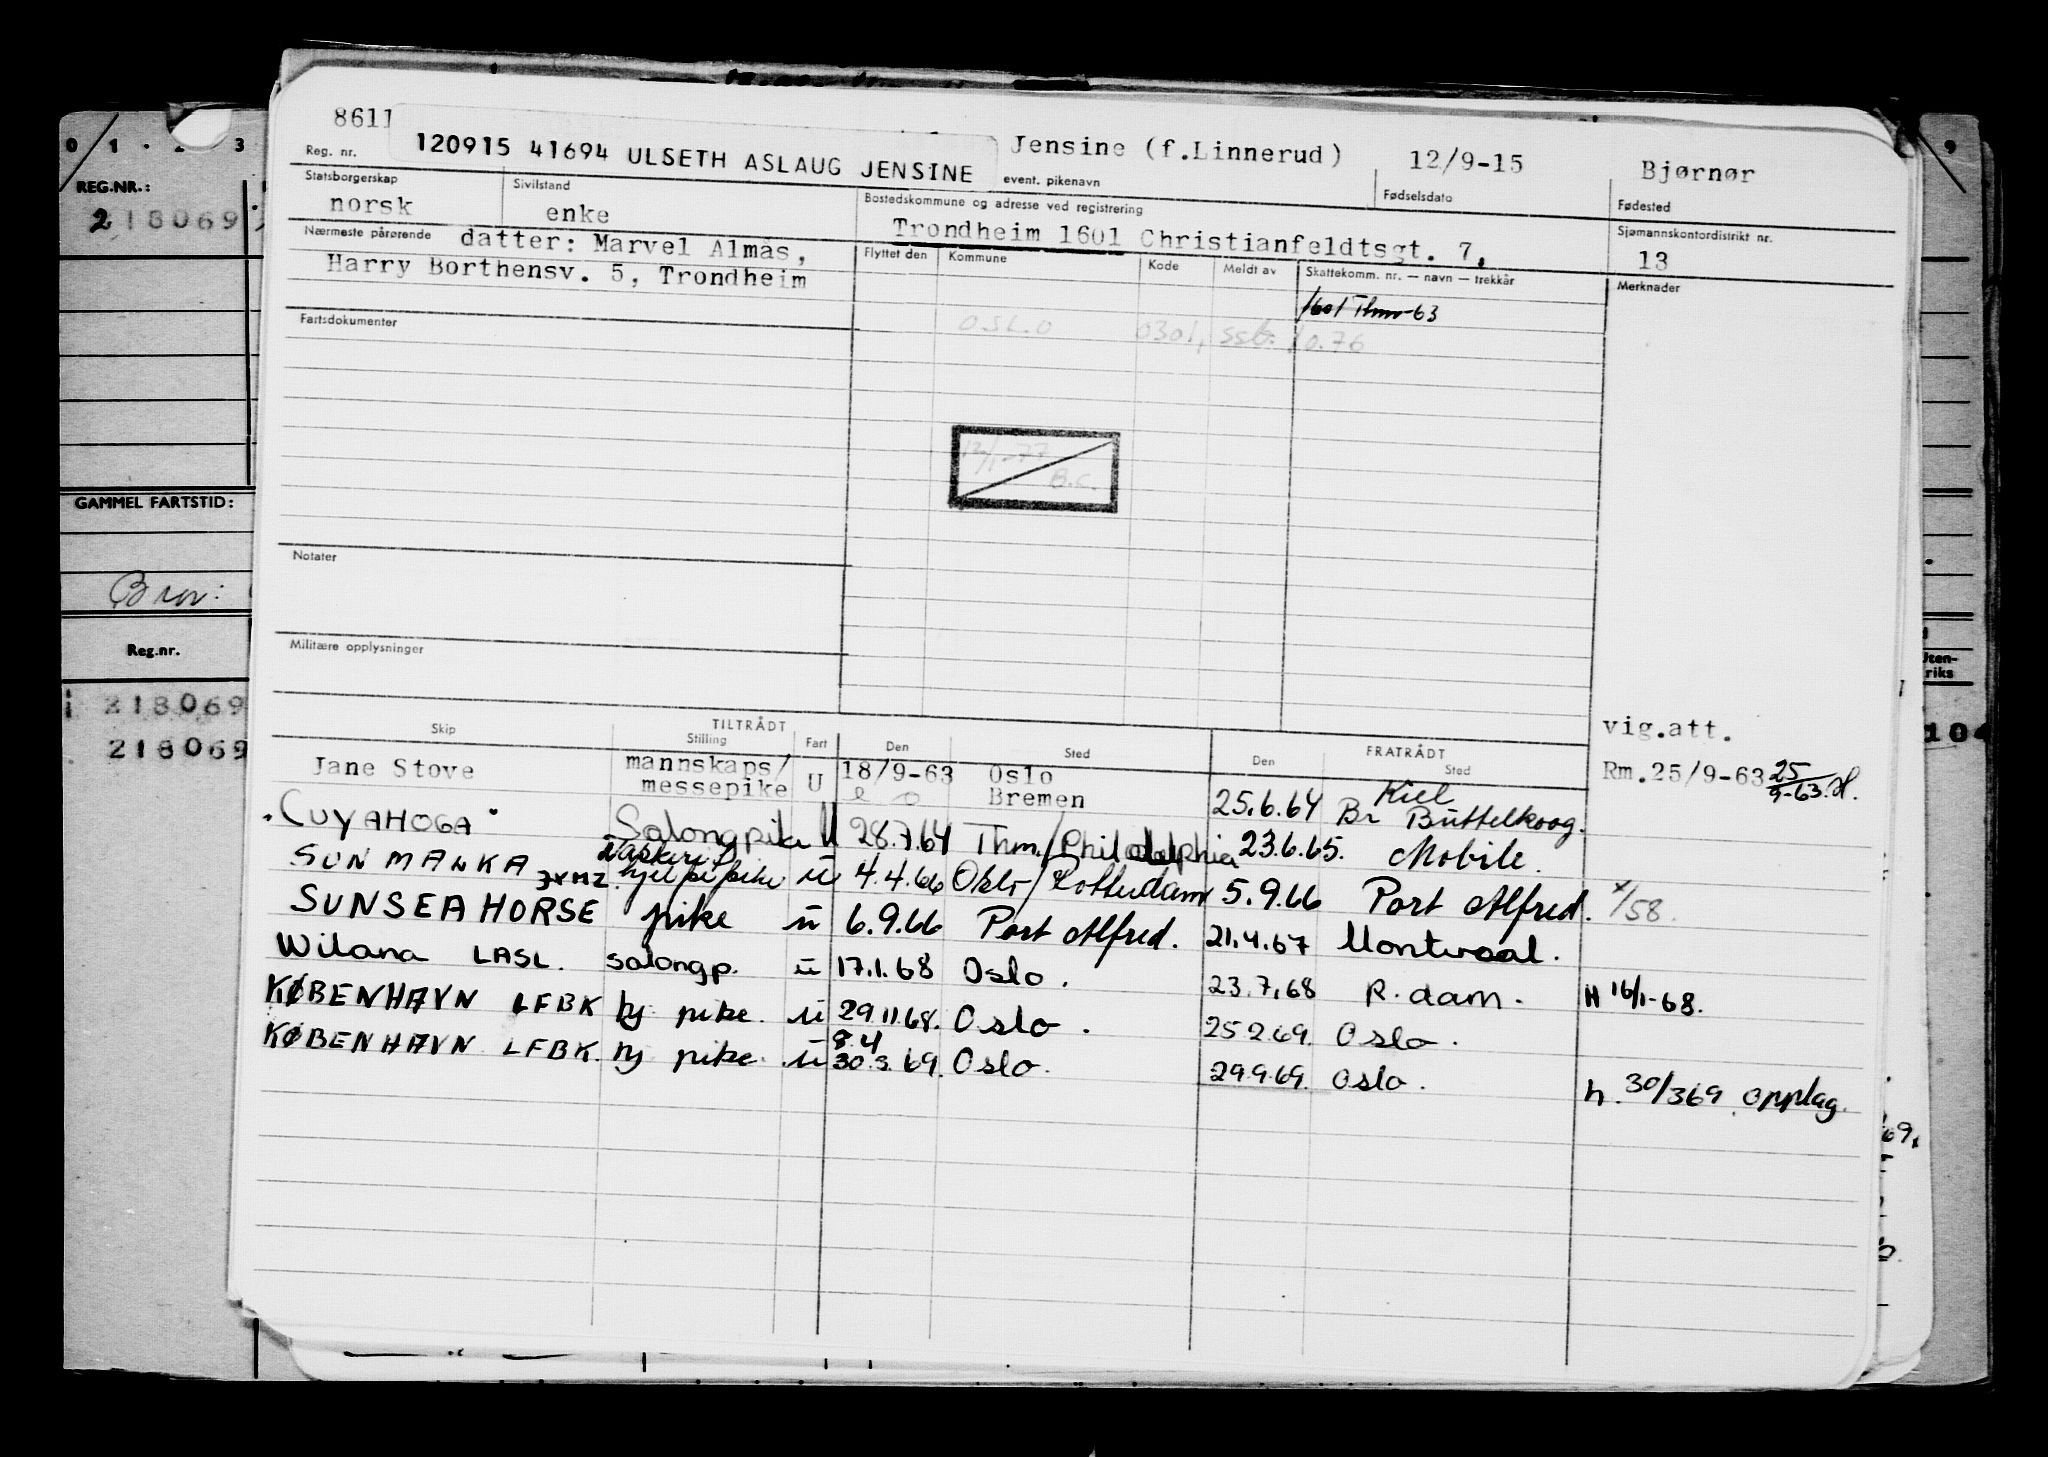 0 1 2 3
REG.NR.:
218069
GAMMEL FARTSTID:
Reg.nr.
218069
218069
9
Uten-
riks
104
69,
8611
120915 41694 ULSETH ASLAUG JENSINE
Jensine (f.Linnerud) 12/9-15 Bjørnør
Reg. nr. event. pikenavn Fødselsdato Fødested
Statsborgerskap Sivilstand Bostedskommune og adresse ved registrering Sjømannskontordistrikt nr.
norsk enke Trondheim 1601 Christianfeldtsgt. 7, 13
Nærmeste pårørende datter: Marvel Almås,
Harry Borthensv. 5, Trondheim
Flyttet den Kommune Kode Meldt av Skattekomm. nr. — navn — trekkår Merknader
1601 Thm-63
Fartsdokumenter
OSLO 0301, ssb. 10.76
12/1-77
B.C.
Notater
Militære opplysninger
vig.att.
TILTRÅDT FRATRÅDT
Skip Stilling Fart Den Sted Den Sted
Jane Stove mannskaps/ messepike U 18/9-63 Oslo Bremen 25.6.64 Kiel Br Büttelkoog. Rm.25/9-63 25/9-63.
"CUYAHOGA" Salongpike U 28.7.64 Thm./Philadelphia 23.6.65. Mobile.
SUN MANKA JXMZ hjelpepike u 4.4.66 Oslo/Rotterdam 5.9.66 Port Alfred. x/58.
SUNSEAHORSE pike u 6.9.66 Port Alfred. 21.4.67 Montreal.
Wilana LASL. salongp. u 17.1.68 Oslo. 23.7.68 R.dam. H 16/1-68.
KØBENHAVN LFBK hj pike. u 29.11.68. Oslo. 25.2.69. Oslo.
8.4
KØBENHAVN LFBK. hj pike. u 30.3.69. Oslo. 29.9.69. Oslo. h. 30/369 opplag.